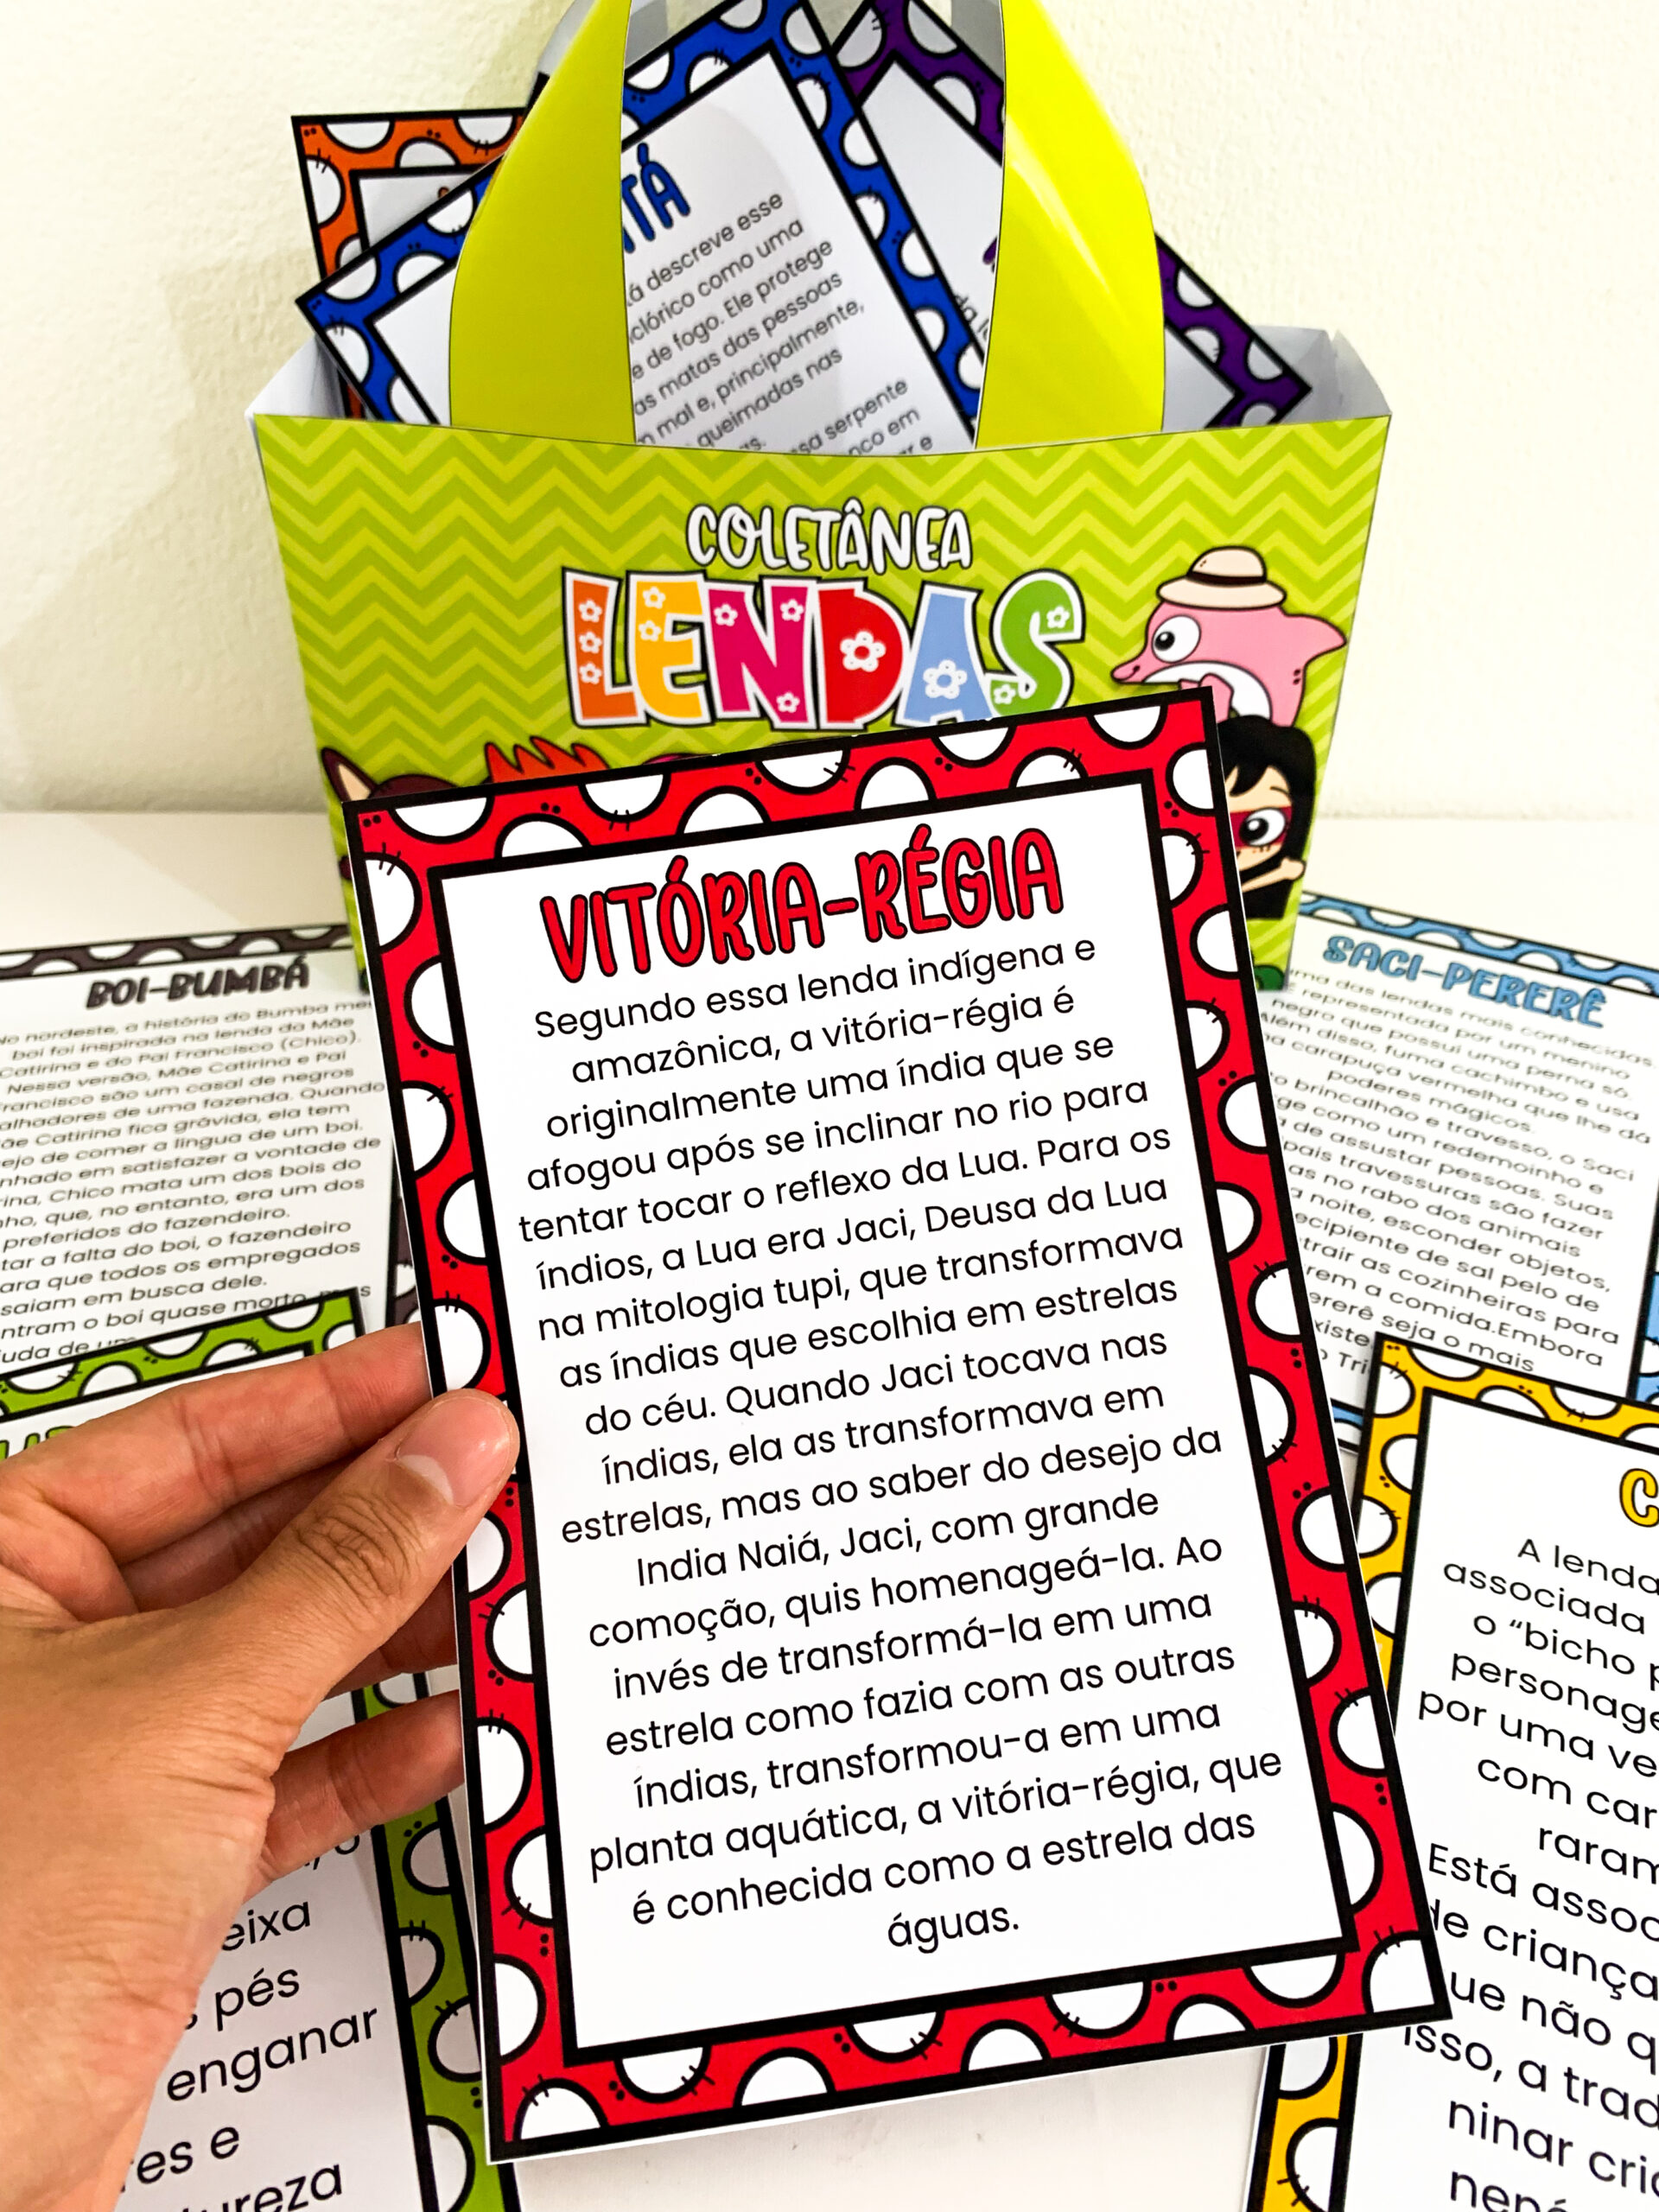 TÁ
descreve esse
clórico como uma
e de fogo. Ele protege
as matas das pessoas
mal e, principalmente,
queimadas nas
serpente
em
e
COLETÂNEA
LENDAS
VITÓRIA-RÉGIA
Segundo essa lenda indígena e
amazônica, a vitória-régia é
originalmente uma índia que se
afogou após se inclinar no rio para
tentar tocar o reflexo da Lua. Para os
índios, a Lua era Jaci, Deusa da Lua
na mitologia tupi, que transformava
as índias que escolhia em estrelas
do céu. Quando Jaci tocava nas
índias, ela as transformava em
estrelas, mas ao saber do desejo da
India Naiá, Jaci, com grande
comoção, quis homenageá-la. Ao
invés de transformá-la em uma
estrela como fazia com as outras
índias, transformou-a em uma
planta aquática, a vitória-régia, que
é conhecida como a estrela das
águas.
BOI-BUMBÁ
No nordeste, a história do Bumba meu
boi foi inspirada na lenda da Mãe
Catirina e do Pai Francisco (Chico).
Nessa versão, Mãe Catirina e Pai
Francisco são um casal de negros
alhadores de uma fazenda. Quando
ãe Catirina fica grávida, ela tem
ejo de comer a língua de um boi.
nhado em satisfazer a vontade de
rina, Chico mata um dos bois do
nho, que, no entanto, era um dos
preferidos do fazendeiro.
tar a falta do boi, o fazendeiro
ara que todos os empregados
saiam em busca dele.
ntram o boi quase morto
uda de
SACI-PERERÊ
uma das lendas mais conhecidas
representada por um menino
negro que possui uma perna só.
Além disso, fuma cachimbo e usa
a carapuça vermelha que lhe dá
poderes mágicos.
o brincalhão e travesso, o Saci
ge como um redemoinho e
de assustar pessoas. Suas
pais travessuras são fazer
as no rabo dos animais
a noite, esconder objetos,
ecipiente de sal pelo de
trair as cozinheiras para
rem a comida.Embora
ererê seja o mais
xiste
Tri
eixa
pés
enganar
res e
ureza
C
A lenda
associada
o "bicho p
personage
por uma ve
com car
raram
Está assoc
de criança
ue não q
isso, a trad
ninar cria
nen